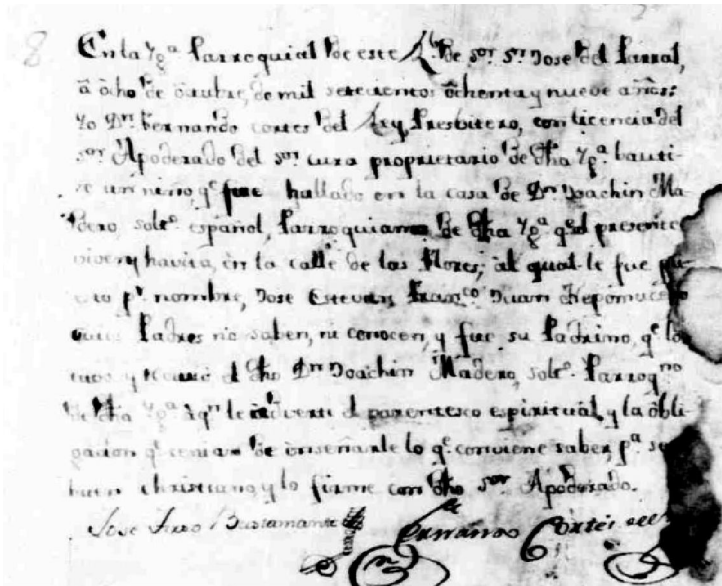 8 En la Yg.ª Parroquial de este R.l de S.or S.n Jose del Parral,
â ôcho de ôctubre, de mil setecientos ôchenta y nueve años:
Yo D.n Fernando Cortes del Rey, Presbitero, con licencia del
S.or Apoderado del S.or cura proprietario de dha Yg.ª bauti-
se un niño, q.e fue hallado en la casa de D.n Joachin Ma-
dero, solt.o español, Parroquiano de dha Yg.ª q.e âl presente
vive y havita, en la calle de las Flores, al qual le fue pu
esto p.r nombre, Jose Estevan, Fran.co Juan Nepomuceno
cuios Padres no saben, ni conocen, y fue su Padrino, q.e lo
tuvo y recivió el dho D.n Joachin Madero, solt.o Parroq.no
de dha Yg.ª â q.n le âdverti el parentesco espiritual, y la ôbli-
gacion q.e tenia de ênseñarle lo q.e conviene saber, p.ª se
buen christiano, y lo firmè con dho S.or Apoderado.
Jose Bustamante Fernando Cortes del